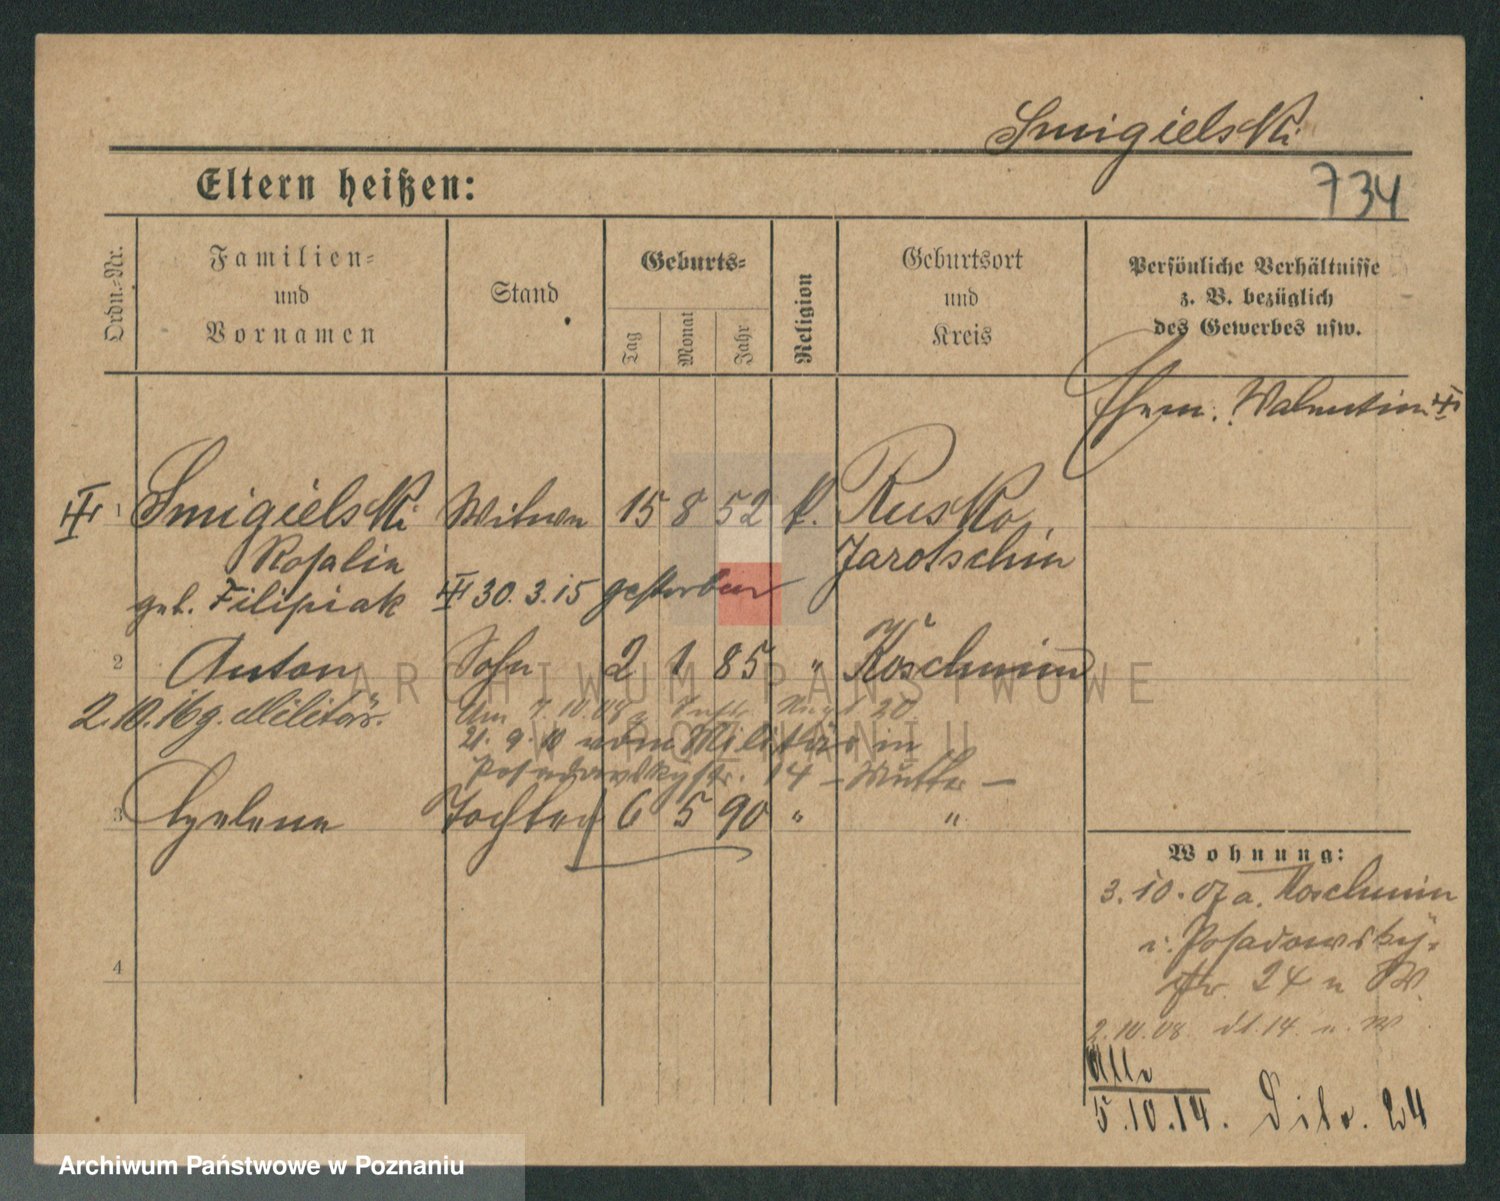 Smigielski
Eltern heißen:
734
Ordn.-Nr.
Familien-
und
Vornamen
Stand
Geburts-
Tag
Monat
Jahr
Religion
Geburtsort
und
Kreis
Persönliche Verhältnisse
z. B. bezüglich
des Gewerbes usw.
Ehem. Valentin
1 Smigielski Witwe 15 8 52 k. Rusko,
Rosalie Jarotschin
geb. Filipiak 30.3.15 gestorben
2 Anton Sohn 2 1 85 " Koschmin
2.10.16 z. Militär.
Am 7.10.08 z. 20
21.9.10 vom Militär in
Posadowskystr. 14 – Mutter –
3 Helene Tochter 6 5 90 " "
4
Wohnung:
3.10.07 a. Koschmin
i. Posadowsky-
str. 24 n W.
2.10.08 dt. 14. n. W
Alle
5.10.14. 24
ARCHIWUM PAŃSTWOWE
W POZNANIU
Archiwum Państwowe w Poznaniu